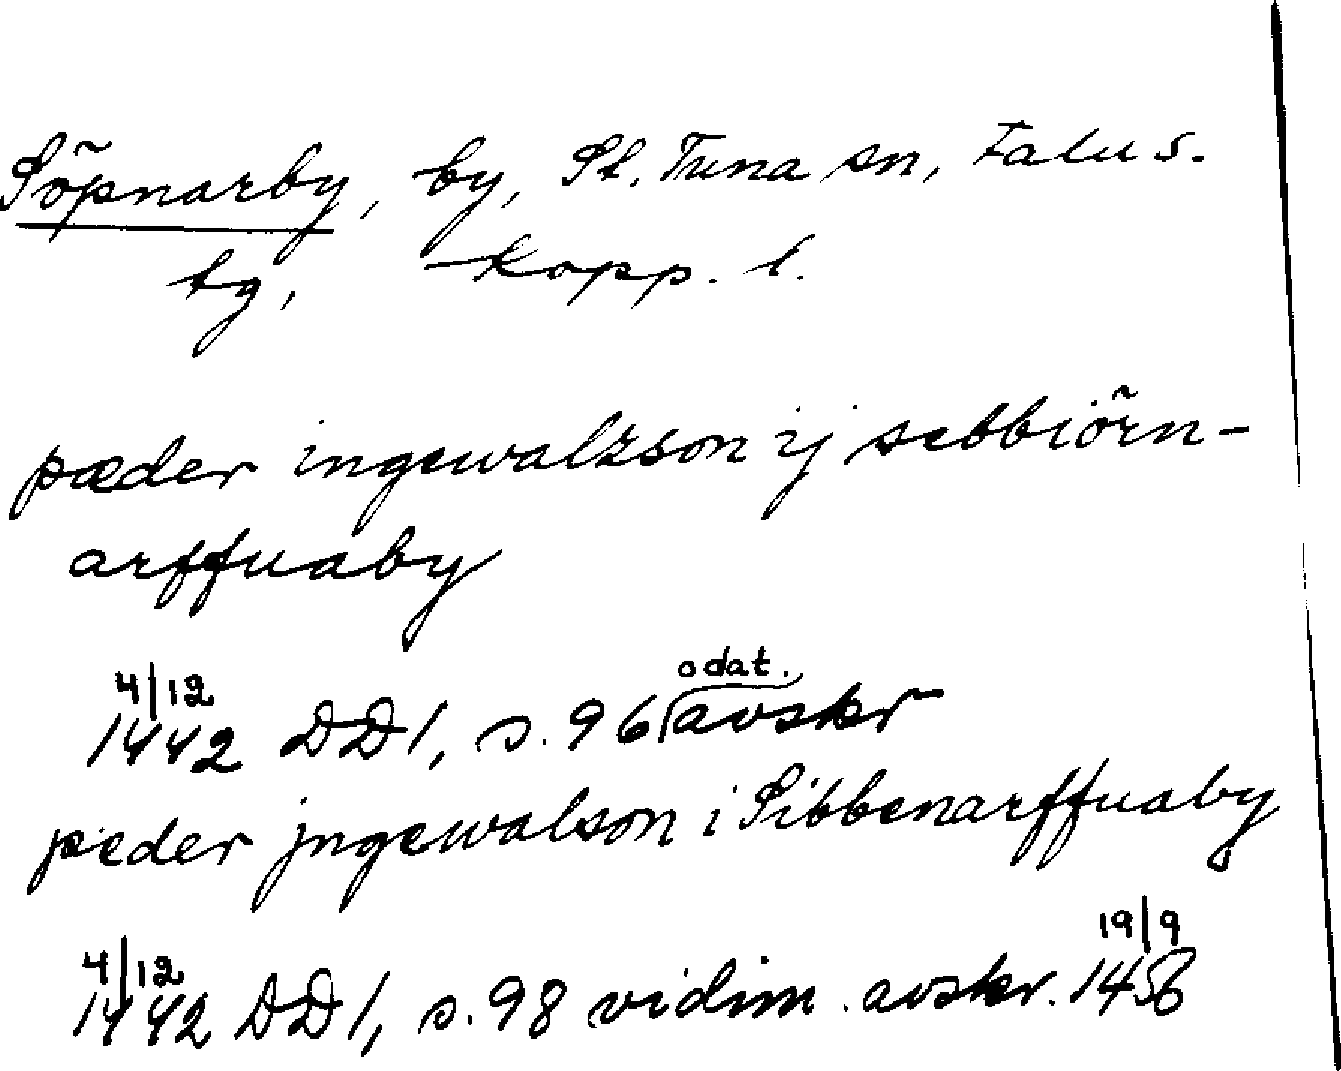 Söpnarby, by, St. Tuna sn, Falu s.
tg, Kopp. l.
pæder ingewalzson ij sebbiörn-
arffuaby
4/12 odat.
1442 DD1, s. 96 avskr
peder jngewalson i Sibbenarffuaby
4/12 19/9
1442 DD1, s. 98 vidim. avskr. 1456